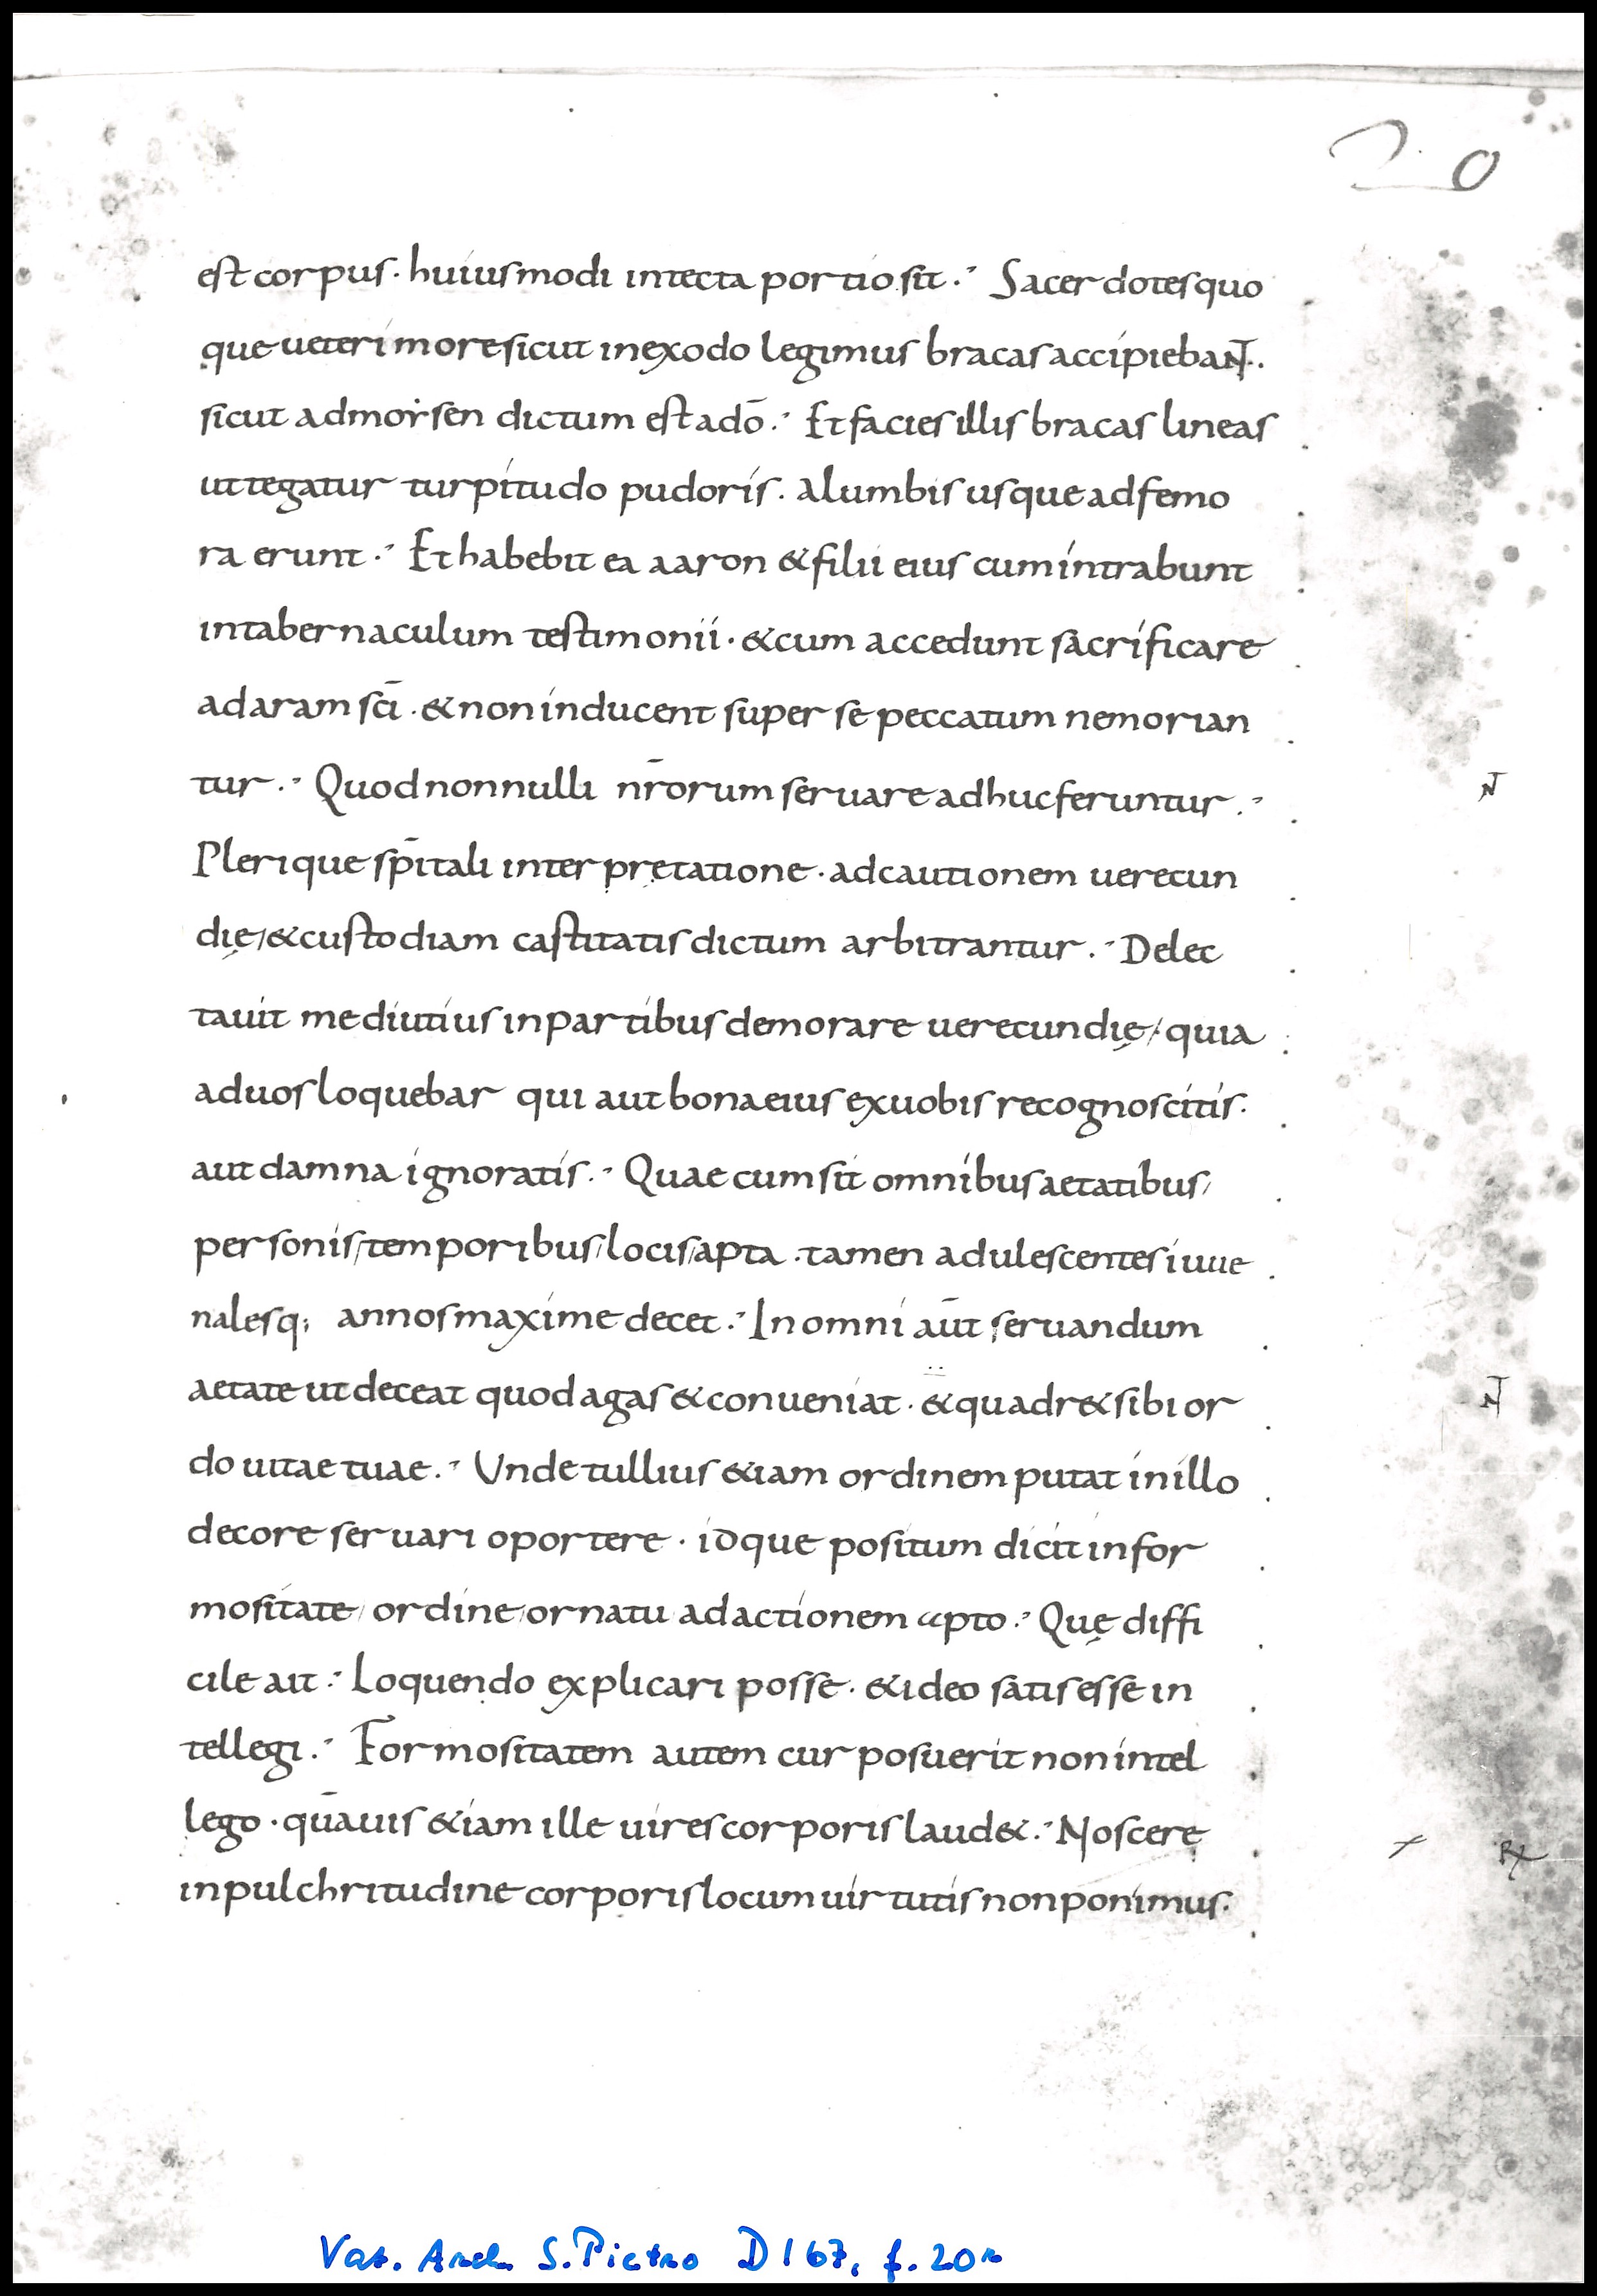 20
est corpus · huiusmodi intecta portio sit .' Sacerdotes quo
que ueteri more sicut in exodo legimus bracas accipiebaNT.
sicut ad morsen dictum est ado͞ .' Et facies illis bracas lineas
ut tegatur turpitudo pudoris . a lumbis usque ad femo
ra erunt .' Et habebit ea aaron & filii eius cum intrabunt
in tabernaculum testimonii · & cum accedunt sacrificare
ad aram sc͞i · & non inducent super se peccatum ne morian
tur .' Quod nonnulli nr͞orum seruare adhuc feruntur .'
Plerique sp͞itali interprętatione · ad cautionem uerecun
dię / & custodiam castitatis dictum arbitrantur .' Delec
tauit me diutius in partibus demorare uerecundię / quia
ad uos loquebar qui aut bona eius ex uobis recognoscitis.
aut damna ignoratis .' Quae cum sit omnibus aetatibus /
personis / temporibus / locis / apta . tamen adulescentes iuue
nalesq; annos maxime decet .' In omni au͞t seruandum
aetate ut deceat quod agas & conueniat · & quadr& sibi or
do uitae tuae .' Unde tullius &iam ordinem putat in illo
decore seruari oportere · idque positum dicit in for
mositate / ordine / ornatu ad actionem apto .' Quę diffi
cile ait .' Loquendo explicari posse · & ideo satis esse in
tellegi .' Formositatem autem cur posuerit non intel
lego · qua͞uis &iam ille uires corporis laud& .' Nos cerę
in pulchritudine corporis locum uirtutis non ponimus.
Vat. Arch. S. Pietro D 167, f. 20r